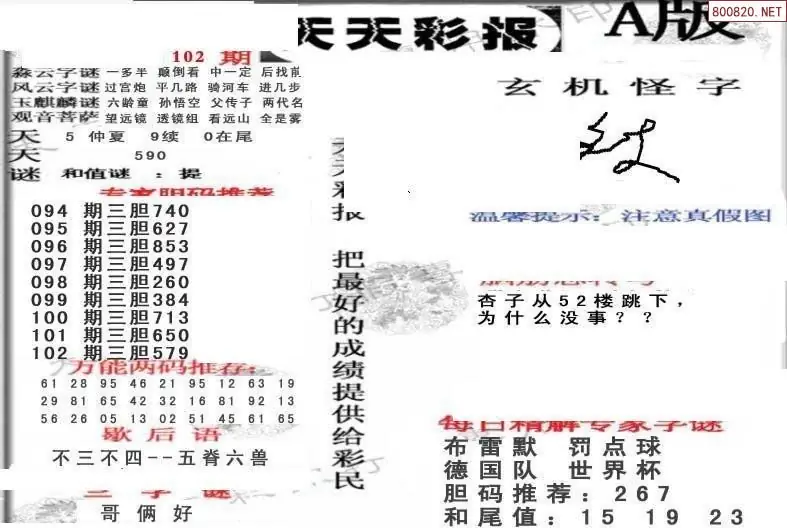 800820.NET
天天彩报】 A版
102 期
森云字谜 一多半 颠倒看 中一定 后找前
风云字谜 过宫炮 平几路 骑河车 进几步
玉麒麟谜 六龄童 孙悟空 父传子 两代名
观音菩萨 望远镜 透镜组 看远山 全是雾
天 5 仲夏 9续 0在尾
天 590
谜 和值谜 : 提
专家胆码推荐
094 期三胆740
095 期三胆627
096 期三胆853
097 期三胆497
098 期三胆260
099 期三胆384
100 期三胆713
101 期三胆650
102 期三胆579
万能两码推荐:
61 28 95 46 21 95 12 63 19
29 81 65 42 32 16 81 92 13
56 26 05 13 02 51 45 61 65
歇后语
不三不四--五脊六兽
三字谜
哥俩好
天天彩报 把最好的成绩提供给彩民
玄机怪字
温馨提示: 注意真假图
脑筋急转弯
杏子从52楼跳下,
为什么没事??
每日精解专家字谜
布雷默 罚点球
德国队 世界杯
胆码推荐:267
和尾值:15 19 23